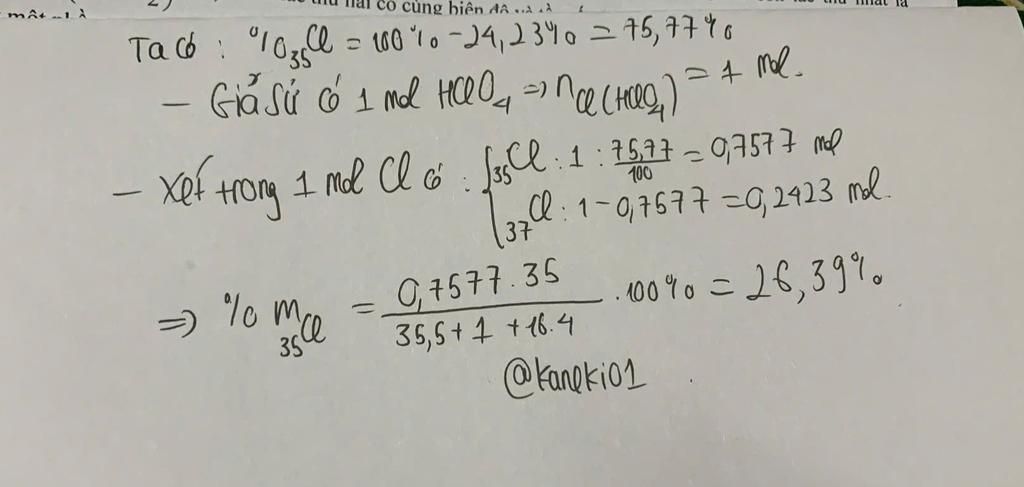 2)
thứ hai có cùng biên độ
Ta có : %35Cl = 100% - 24,23% = 75,77%
- Giả sử có 1 mol HClO4 => nCl(HClO4) = 1 mol.
- Xét trong 1 mol Cl có : { 35Cl : 1 : 75,77/100 = 0,7577 mol
37Cl : 1 - 0,7577 = 0,2423 mol.
=> % m35Cl = 0,7577.35 / 35,5+1+16.4 .100% = 26,39%
@kaneki01